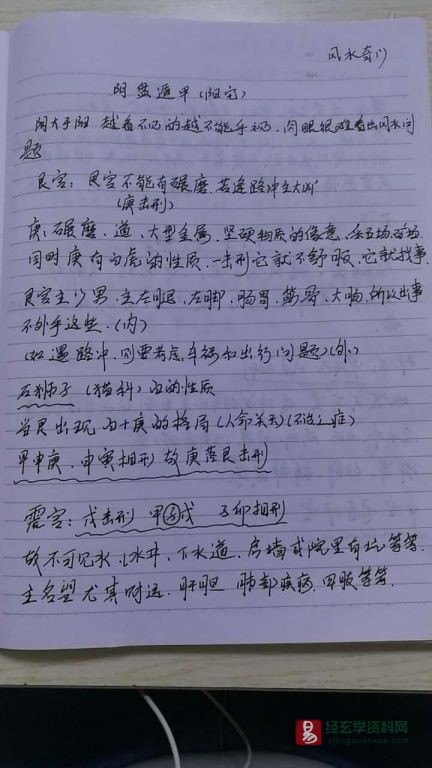 风水奇门
阴盘遁甲(阳宅)
阴大于阳 越看不见的越不能手视.肉眼很难看出风水问
题
艮宫:艮宫不能有碾磨.若逢路冲主大凶
(庚击刑)
庚:碾磨、道、大型金属.坚硬物质的像意.
同时庚有白虎的性质.一击刑它就不舒服,它就找事.
艮宫主少男,主左腿,左脚,肠胃,筋骨,大肠.所以出事
不外乎这些.(内)
(如遇路冲.则要考虑车祸和出行问题)(外)
石狮子(猫科)白的性质
当是出现 白十庚的格局(人命关天)(不治之症)
甲申庚.申寅相刑 故庚落艮击刑
震宫:戊击刑 甲子戊 子卯相刑
故不可见水.(水井,下水道,房墙或院里有坑等等.
主名望尤其财运.肝胆 肺部疾病.四肢等等.
易 经玄学资料网
yijingxuanxue.com